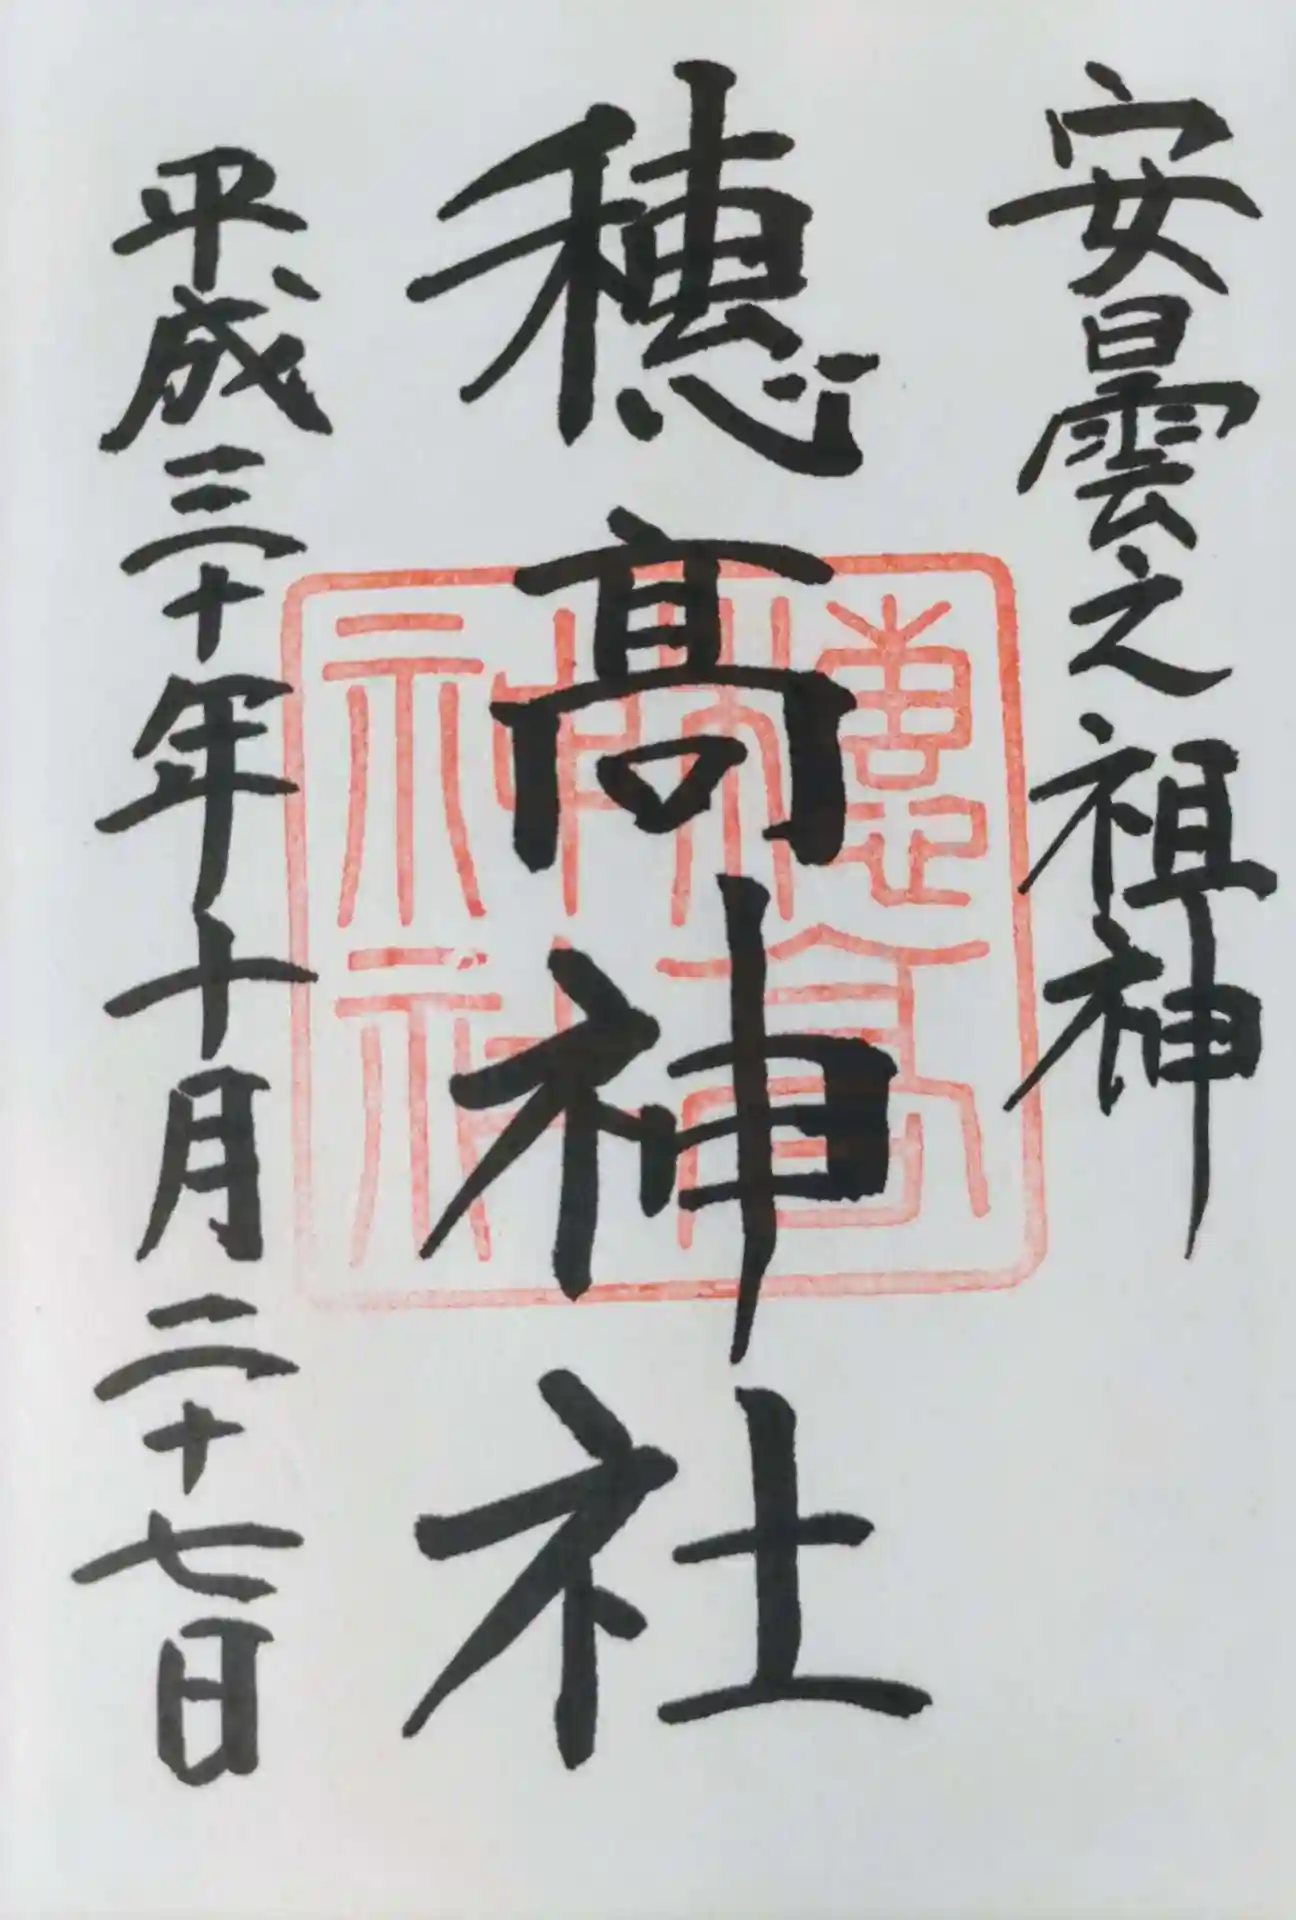 安曇之祖神
穂髙神社
穂髙神社
平成三十年十月二十七日